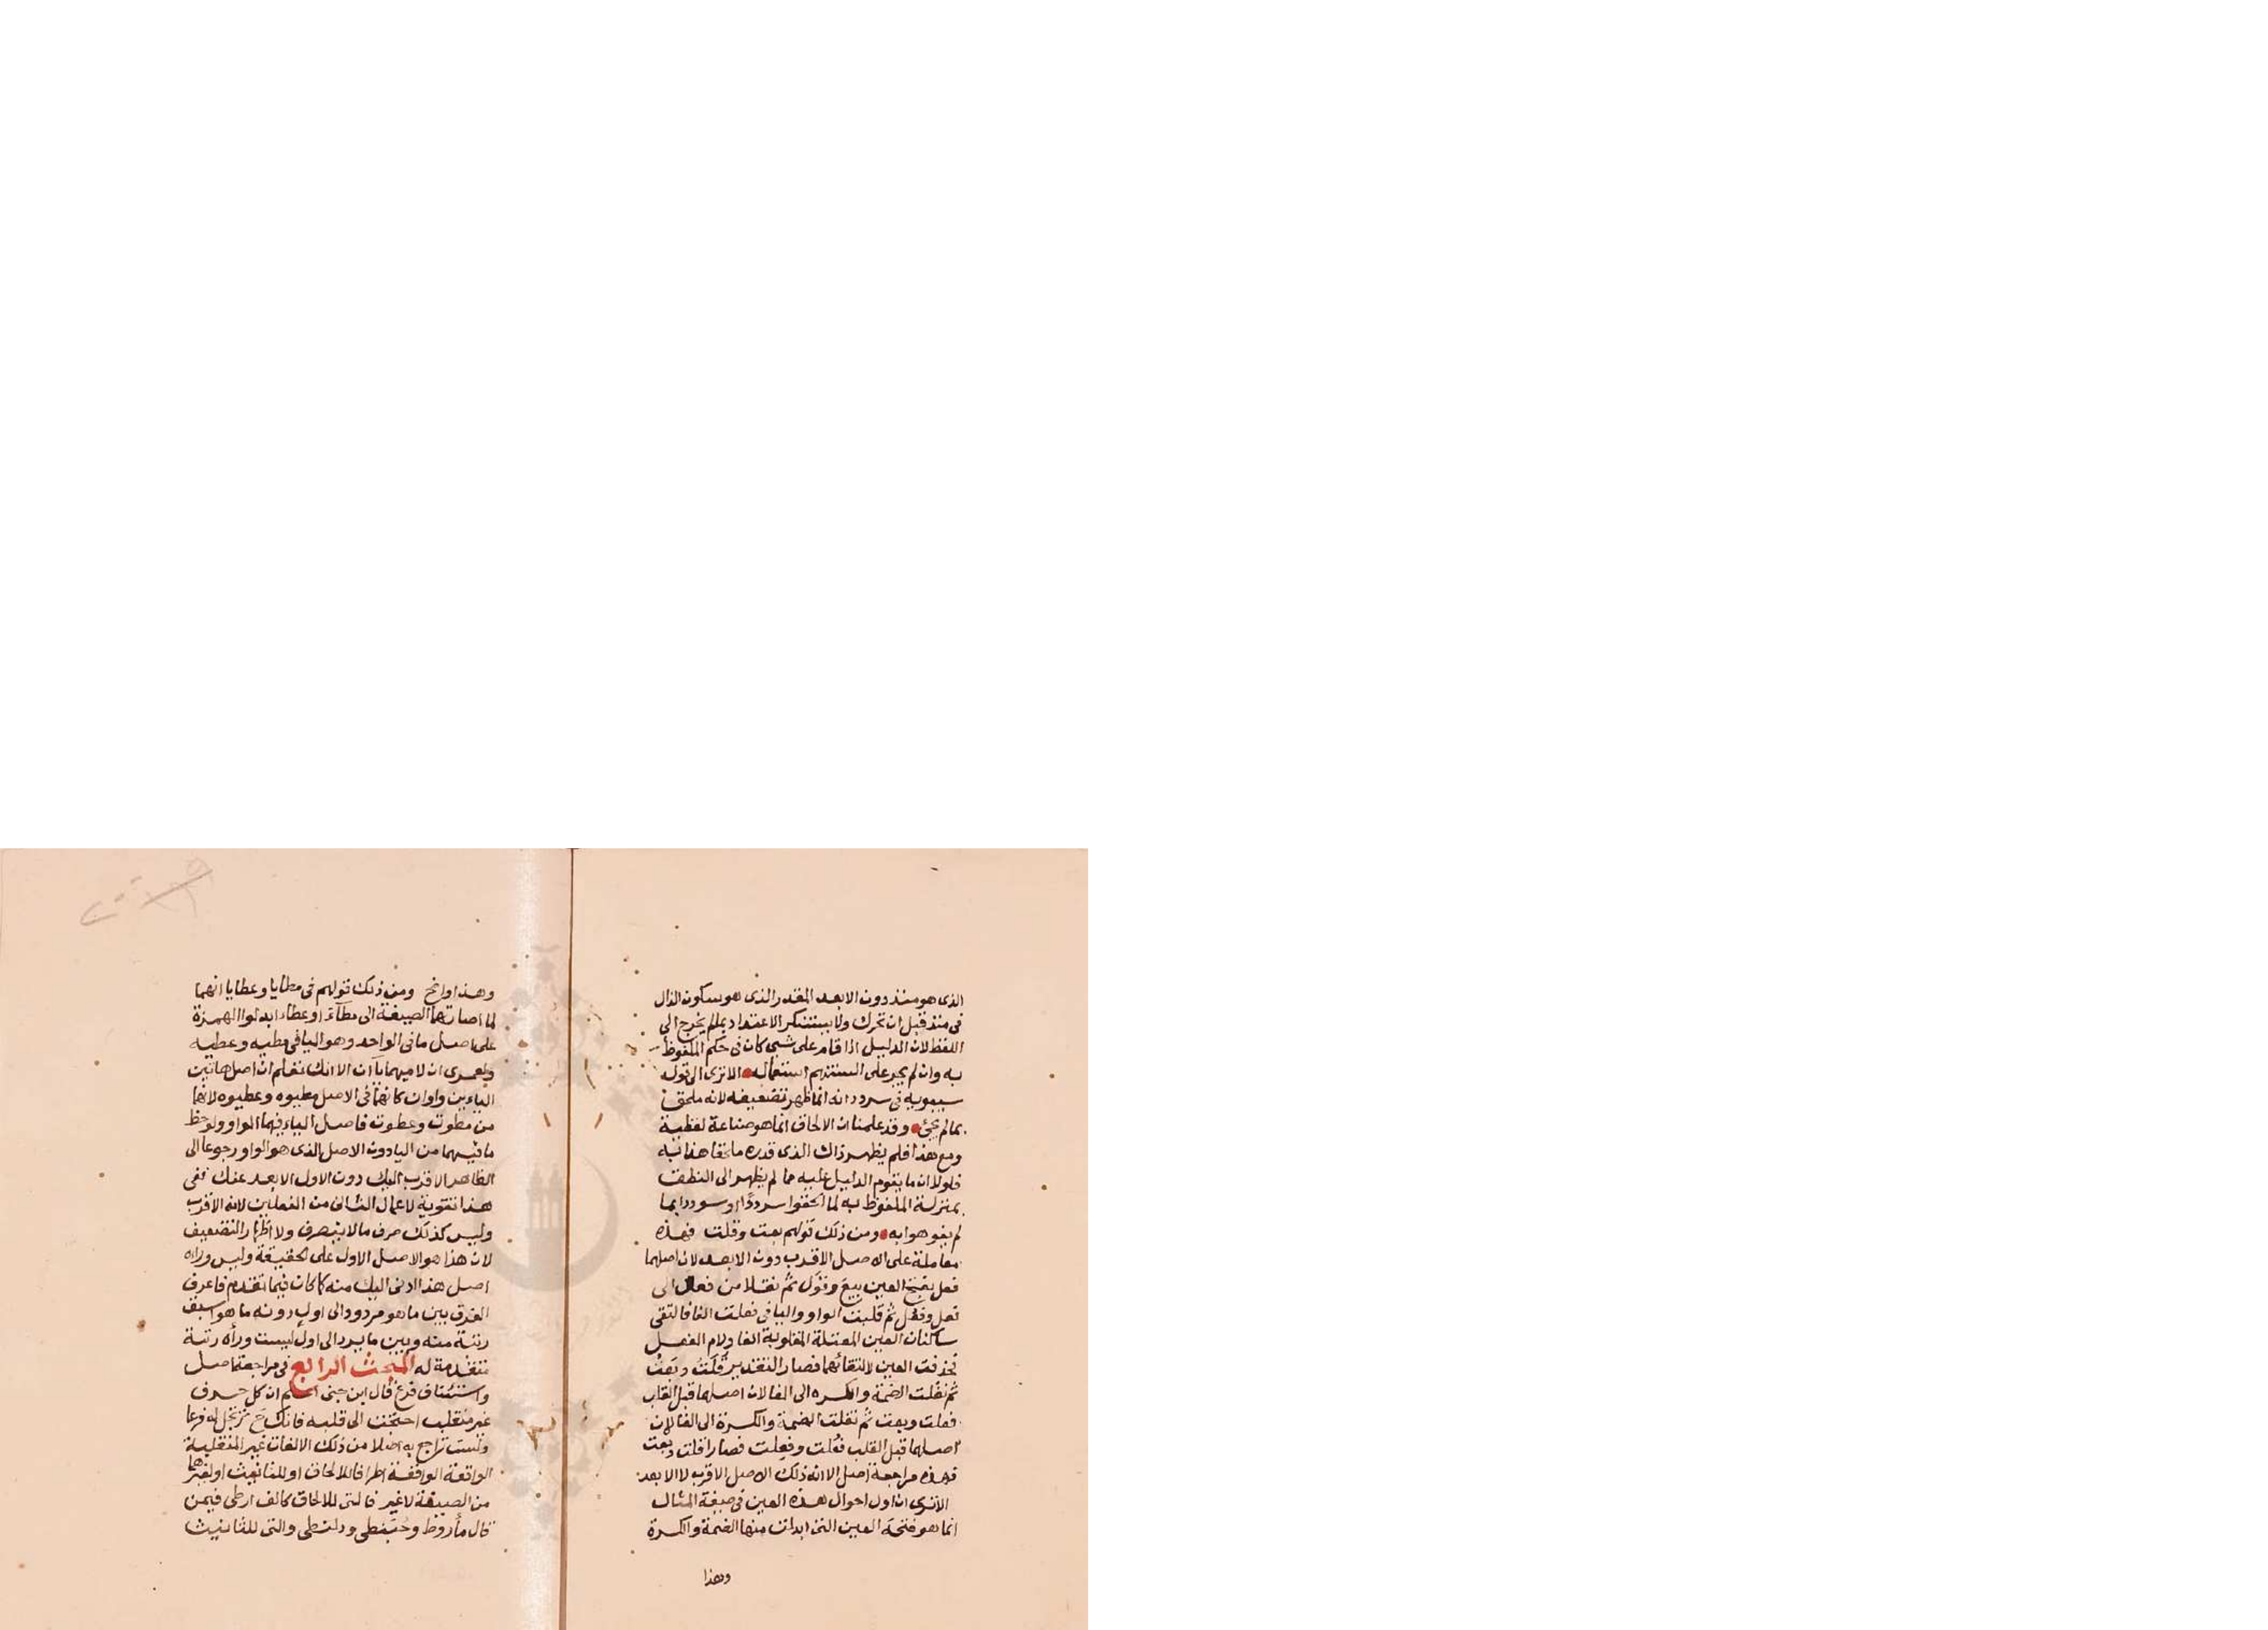 الذى هو منذ دون الابعد المقدر الذى هو سكون الذال
فى منذ قبل ان تحرك ولا يستنكر الاعتداد بما لم يخرج الى
اللفظ لان الدليل اذا قام على شىء كان فى حكم الملفوظ
به وان لم يجر على السنتهم استعماله الا ترى الى قول
سيبويه فى سردد انه انما ظهر تضعيفه لانه ملحق
بما لم يجئ وقد علمنا ان الالحاق انما هو صناعة لفظية
ومع هذا فلم يظهر ذاك الذى قدره ملحقا هذا به
فلولا ان ما يقوم الدليل عليه مما لم يظهر الى النطق
بمنزلة الملفوظ به لما الحقوا سرددًا وسوددا بما
لم يفوهوا به ومن ذلك قولهم بعت وقلت فهذه
معاملة على الاصل الاقرب دون الابعد لان اصلهما
فعل بفتح العين بيع وقول ثم نقلا من فعل الى
فعل وفعل ثم قلبت الواو واليا فى فعلت الفا فالتقى
ساكنان العين المعتلة المقلوبة الفا ولام الفعل
فحذفت العين لالتقائهما فصار التقدير قَلْتُ وبَعْتُ
ثم نقلت الضمة والكسره الى الفا لان اصلهما قبل القلب
فعلت وبعت ثم نقلت الضمة والكسرة الى الفا لان
اصلهما قبل القلب فعُلت وفعِلت فصارا قلت وبعت
فهذه مراجعة اصل الا انه ذلك الاصل الاقرب لا الابعد
الا ترى ان اول احوال هذه العين فى صيغة المثال
انما هو فتحة العين التى ابدلت منها الضمة والكسرة
وهذا
وهذا واضح ومن ذلك قولهم فى مطايا وعطايا انهما
لما اصارتهما الصيغة الى مطآء وعطاء ابدلوا الهمزة
على اصل ما فى الواحد وهو اليا فى مطيه وعطيه
ولعمرى ان لاميهما يآ ان الا انك تعلم ان اصل هاتين
الياءين واوان كانهما فى الاصل مطيوه وعطيوه لانهما
من مطوت وعطوت فاصل الياء فيهما الواو ولوحظ
ما فيهما من اليا دون الاصل الذى هو الواو رجوعا الى
الظاهر الاقرب اليك دون الاول الابعد عنك ففى
هذا تقوية لاعمال الثانى من الفعلين لانه الاقرب
وليس كذلك صرف ما لا ينصرف ولا اظهار التضعيف
لان هذا هو الاصل الاول على الحقيقة وليس وراه
اصل هذا ادنى اليك منه كما كان فيما تقدم فاعرف
الفرق بين ما هو مردود الى اول دونه ما هو اسبق
رتبة منه وبين ما يرد الى اول ليست ورأه رتبة
متقدمة له المبحث الرابع فى مراجعة اصل
واستئناف فرع قال ابن جنى اعلم ان كل حرف
غير منقلب احتجت الى قلبه فانك ح ترتجل له فرعا
ولست تراجع به اصلا من ذلك الالفات غير المنقلبة
الواقعة الواقعة اطرافا للالحاق او للتانيث او لغيرهما
من الصيغة لا غير فالتى للالحاق كالف ارطى فيمن
قال مأروط وحَبَنطى ودلنطى والتى للتانيث